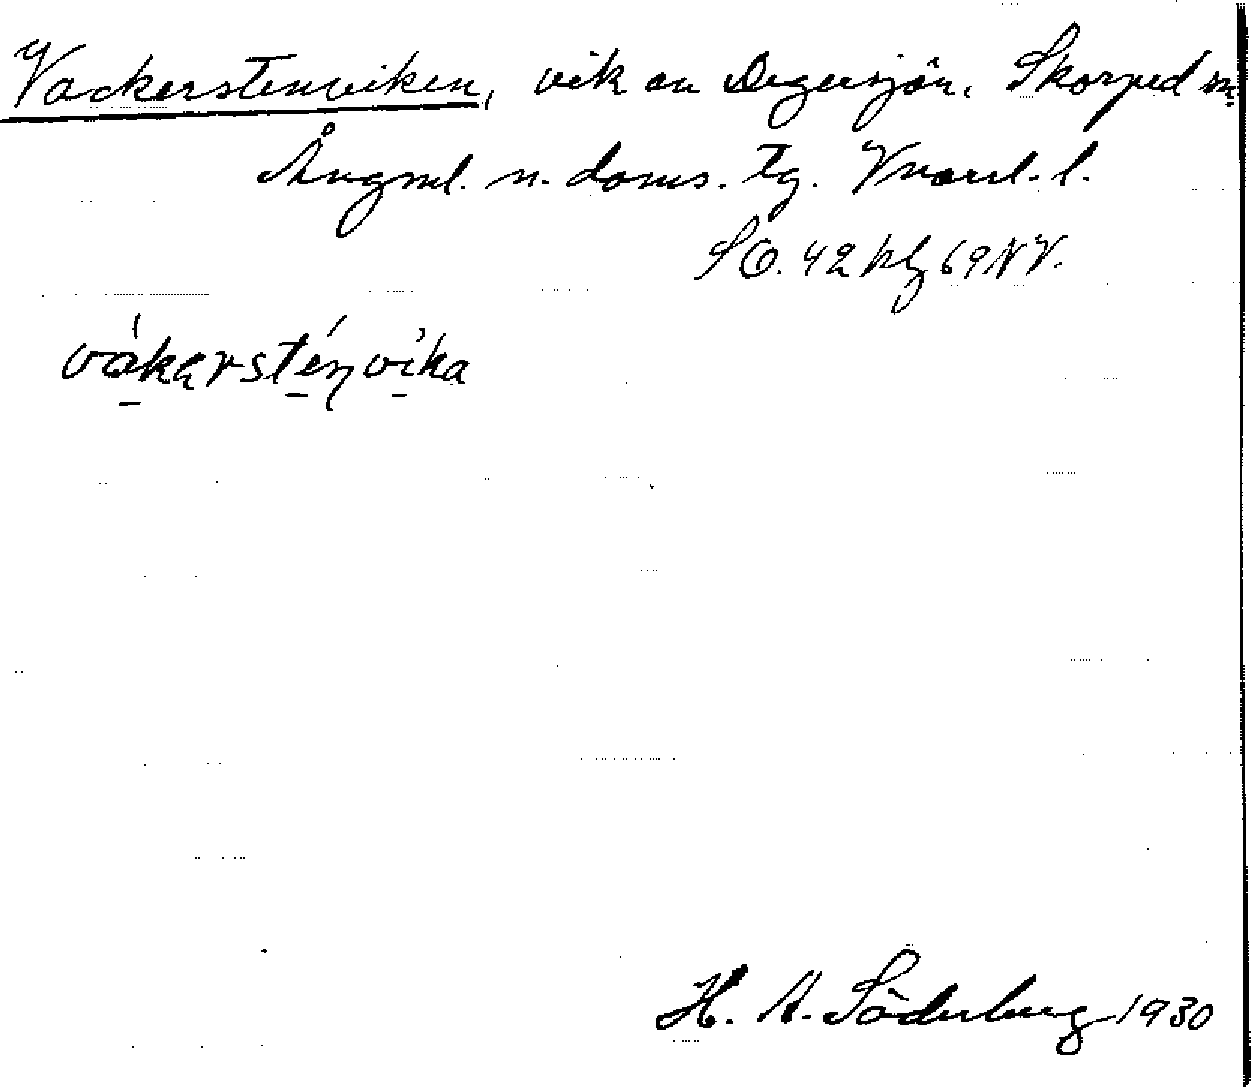 Vackerstensviken, vik av Degersjön, Skorped sn
Ångml. n. doms. tg. Vnorrl. l.
SO. 42 blg 69 NV.
vákarsténvika
H. A. Söderberg 1930